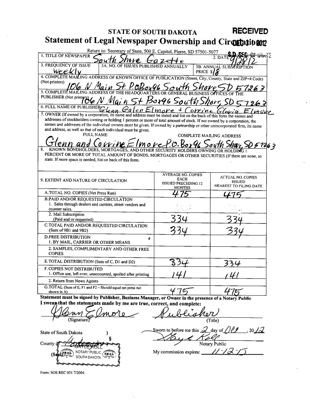 STATE OF SOUTH DAKOTA
RECEIVED
Statement of Legal Newspaper Ownership and Circulation
Return to: Secretary of State, 500 E. Capitol, Pierre, SD 57501-5077
1. TITLE OF NEWSPAPER
South Shore Gazette
2. DATE
3. FREQUENCY OF ISSUE
weekly
3A. NO. OF ISSUES PUBLISHED ANNUALLY
3B. ANNUAL SUBSCRIPTION
PRICE
4. COMPLETE MAILING ADDRESS OF KNOWN OFFICE OF PUBLICATION (Street, City, County, State and ZIP+4 Code)
(Not printers)
106 N Main St PO Box 96 South Shore, SD 57263
5. COMPLETE MAILING ADDRESS OF THE HEADQUARTERS OR GENERAL BUSINESS OFFICES OF THE
PUBLISHER (Not printer)
106 N Main St PO Box 96 South Shore, SD 57263
6. FULL NAME OF PUBLISHER
Elmore
7. OWNER (If owned by a corporation, its name and address must be stated and also on the back of this form the names and
addresses of stockholders owning or holding 1 percent or more of total amount of stock. If not owned by a corporation, the
names and addresses of the individual owners must be given. If owned by a partnership or other unincorporated firm, its name
and address, as well as that of each individual must be given.
FULL NAME
COMPLETE MAILING ADDRESS
Glenn and Corrine Elmore P.O. Box 96 South Shore, SD 57263
8. KNOWN BONDHOLDERS, MORTGAGES, AND OTHER SECURITY HOLDERS OWNING OR HOLDING 1
PERCENT OR MORE OF TOTAL AMOUNT OF BONDS, MORTGAGES OR OTHER SECURITIES (If there are none, so
state. If more space is needed, list on back of this form.
9. EXTENT AND NATURE OF CIRCULATION
AVERAGE NO. COPIES
EACH
ISSUED PRECEDING 12
MONTHS
ACTUAL NO. COPIES
ISSUED
NEAREST TO FILING DATE
A. TOTAL NO. COPIES (Net Press Run)
475
475
B. PAID AND/OR REQUESTED CIRCULATION
1. Sales through dealers and carriers, street vendors and
counter sales.
2. Mail Subscription
(Paid and/or requested)
334
334
C. TOTAL PAID AND/OR REQUESTED CIRCULATION
(Sum of 9B1 and 9B2)
334
334
D. FREE DISTRIBUTION
1. BY MAIL, CARRIER OR OTHER MEANS
2. SAMPLES, COMPLIMENTARY AND OTHER FREE
COPIES
E. TOTAL DISTRIBUTION (Sum of C, D1 and D2)
334
334
F. COPIES NOT DISTRIBUTED
1. Office use, left over, unaccounted, spoiled after printing
141
141
2. Return from News Agents
G. TOTAL (Sum of E, F1 and F2 - Should equal net press run
shown in A)
475
475
Statement must be signed by Publisher, Business Manager, or Owner in the presence of a Notary Public
I swear that the statements made by me are true, correct, and complete:
Glenn Elmore
Publisher
(Signature)
(Title)
State of South Dakota
)
Sworn to before me this 2 day of Oct, 20 12
§
County
NOTARY PUBLIC
SOUTH DAKOTA
SEAL
Notary Public
My commission expires:
Form: SOS REC 051 7/2004